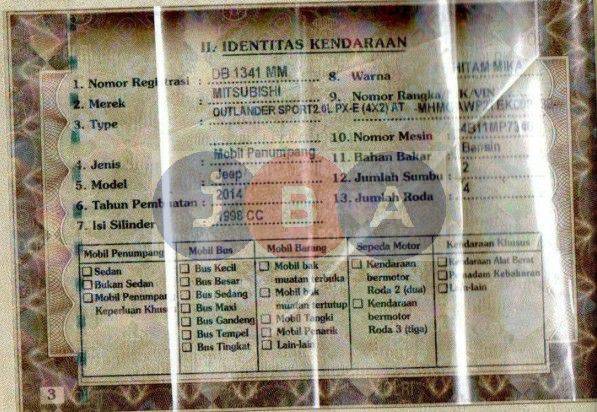 II. IDENTITAS KENDARAAN
1. Nomor Registrasi : DB 1341 MM
2. Merek : MITSUBISHI
3. Type : OUTLANDER SPORT2.0L PX-E (4X2) AT
4. Jenis : Mobil Penumpang
5. Model : Jeep
6. Tahun Pembuatan : 2014
7. Isi Silinder : 1998 CC
8. Warna HITAM MIKA
9. Nomor Rangka/NIK/VIN
10. Nomor Mesin
11. Bahan Bakar Bensin
12. Jumlah Sumbu : 2
13. Jumlah Roda : 4
JBA
Mobil Penumpang
Sedan
Bukan Sedan
Mobil Penumpang
Keperluan Khusus
Mobil Bus
Bus Kecil
Bus Besar
Bus Sedang
Bus Maxi
Bus Gandeng
Bus Tempel
Bus Tingkat
Mobil Barang
Mobil bak
muatan terbuka
Mobil bak
muatan tertutup
Mobil Tangki
Mobil Penarik
Lain-lain
Sepeda Motor
Kendaraan
bermotor
Roda 2 (dua)
Kendaraan
bermotor
Roda 3 (tiga)
Kendaraan Khusus
Kendaraan Alat Berat
Pemadam Kebakaran
Lain-lain
3